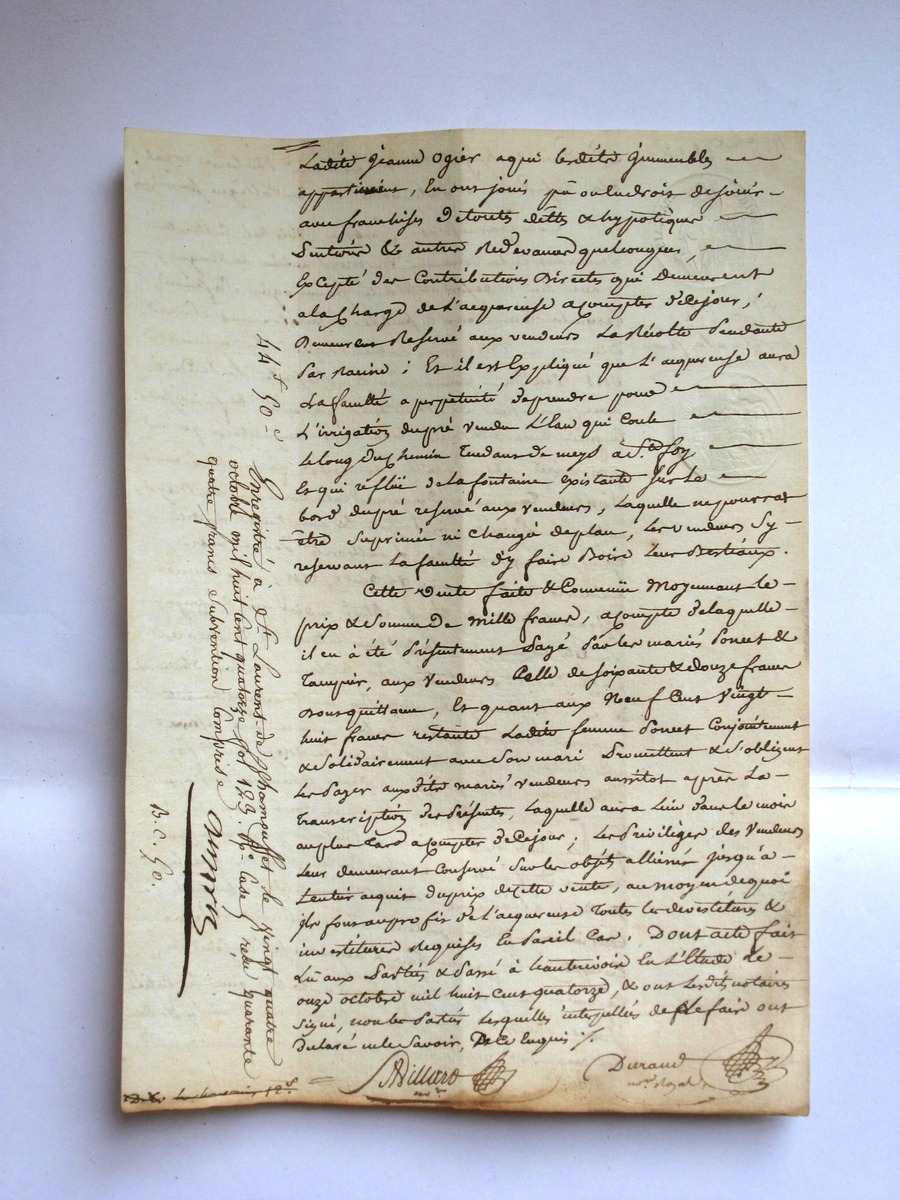 Ladite Jeanne Ogier a qui lesdits immeubles
appartienent, En ont joui pû ou eu droit de jouir
avec franchises de toutes dettes & hypotiques
Rentives & autres Redevances quelconques,
Excepté des Contributions Directes qui Demeurent
a la Charge de l'acquereuse a Compter de ce jour,
Demeurent Reservé aux vendeurs La Récolte Pendante
Par Racine ; Et il est Expliqué que l'acquereuse aura
La faculté a perpetuité de prendre pour
L'irrigation du pré vendu L'Eau qui Coule
le long du Chemin Tendant de meys à Ste foy
Et qui reflüe de la fontaine Existante sur Le
bord du pré reservé aux vendeurs, Laquelle ne pourrat
être Suprimée ni Changé de place, Les vendeurs Sy
reservant La faculté d'y faire Boire Leur Bestiaux.
Cette vente faite & Convenüe Moyennant le
prix & Somme de Mille francs, a Compte de laquelle
il en à été Présentement Payé Par les mariés Poncet &
aux Vendeurs Celle de soixante & douze francs
Dont quittance, Et quant aux Neuf Cent Vingt
huit francs restants Ladite femme Poncet Conjointement
& Solidairement avec Son mari Promettent & S'obligent
Les Payer auxdits mariés vendeurs aussitot après La
Transcription des Présentes, Laquelle aura Lieu Dans le mois
au plus Tard a Compter de ce jour ; Les Privilèges des Vendeurs
Leur demeurant Conservé Sur les objets alliénés jusqu'a
L'entier acquit du prix de cette vente, au moyen de quoi
ils font au profit de l'acquereuse Toutes les devestitures &
investitures Requises En Pareil Cas. Dont acte fait
Lû aux Parties & Passé à hauterivoire En L'Etude Le
onze octobre mil huit Cent quatorze, & ont Lesdits notaires
Signé, non les Parties Lesquelles interpellées de Le faire ont
Declaré ne le Savoir, De Ce Enquis /.
Billard
nre
Durand
nre Royal
44f 50 c
Enregistré à St Laurent de Chamousset le vingt quatre
octobre mil huit Cent quatorze fol. 123. Rto Case reçu quarante
quatre francs Subvention Comprise
B. C. 50.